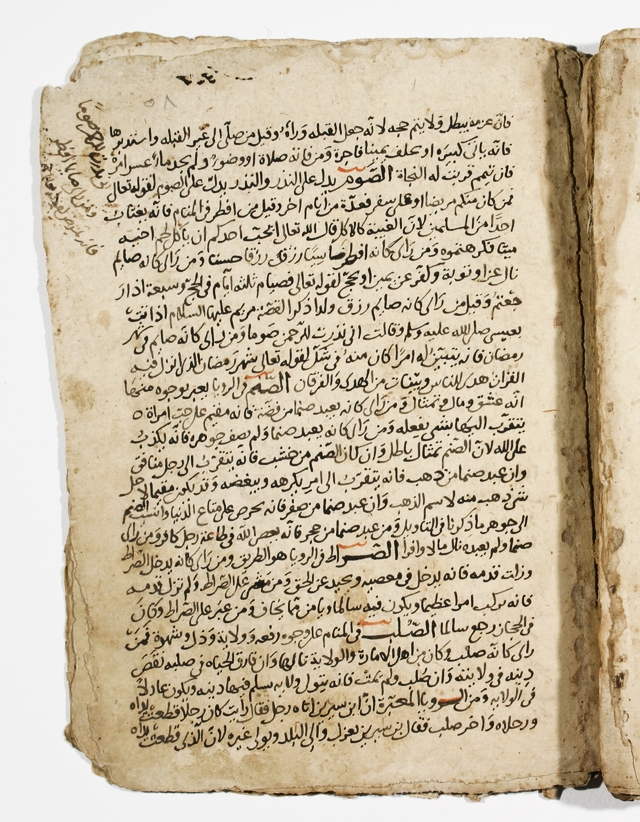 فانه عزمه يبطل ولا يتم حجه لانه جعل القبله وراه وقيل من صلى الى غير القبله واستدبرها
فانه ياتي كبيره او يحلف يمينا فاجرة ومن فاته صلاة او وضوء ولم يجد ماء عسر امره
فان تيمم قربت له النجاة الصوم يدل على النذر والنذر يدل على الصوم لقوله تعالى
فمن كان منكم مريضا او على سفر فعدة من ايام اخر وقيل من افطر في المنام فانه يغتاب
احدا من المسلمين لان الغيبة كالاكل قال الله تعالى ايحب احدكم ان ياكل لحم اخيه
ميتا فكرهتموه ومن راى كانه افطر رزق رزقا حسنا ومن راى كانه صايم
نال عزا وتوبة وكفر عن يمين او يحج لقوله تعالى فصيام ثلثه ايام في الحج وسبعة اذا ر
جعتم وقيل من راى كانه صايم رزق ولدا ذكرا لقصة مريم عليها السلام اذ اتت
بعيسى صلى الله عليه وسلم وقالت اني نذرت للرحمن صوما ومن راى كانه صايم في شهر
رمضان فانه يتبين له امرا كان منه في شك لقوله تعالى شهر رمضان الذي انزل فيه
القران هدى للناس وبينات من الهدى والفرقان الصنم في الرويا يعبر بوجوه منها
انه عشق ومال وتمثال ومن راى كانه يعبد صنما من فضة فانه مقيم على حب امراة
يتقرب اليها بشي يفعله ومن راى كانه يعبد صنما ولم يصف جوهره فانه يكذب
على الله لان الصنم تمثال باطل وان كان الصنم من خشب فانه يتقرب الى رجل منافق
وان عبد صنما من ذهب فانه يتقرب الى امر يكرهه ويبغضه وقد يكون مقيما
شي ذهب منه لاسم الذهب وان عبد صنما من صفر فانه يحرص على متاع الدنيا وانسب الصنم
الى جوهر ما ذكرنا في التاويل ومن عبد صنما من حجر فانه يعصي الله في طاعة رجل كافر ومن راى
صنما ولم يعبده نال مالا وافرا الصراط في الرويا هو الطريق ومن راى كانه يدخل الصراط
وزلت قدمه فانه يدخل في معصيه ويحيد عن الحق ومن على الصراط ولم تزل قدمه
فانه يركب امرا عظيما ويكون فيه سالما ويامن مما يخاف ومن عبر على الصراط وكان
رجع سالما الصلب في المنام على وجوه رفعه وولاية وذل وشهرة فمن
راى كانه صلب وكان من اهل الامارة والولاية نالها وان فارق الحياه في صلبه نقص
دينه في ولايته وان صلب ولم يمت فانه يتولى ولايه يسلم فيها دينه ويكون عادلا
في الولايه ومن الرويا المعبرة ان ابن سيرين اتاه رجل فقال رايت كان رجلا قطعت يداه
ورجلاه واخر صلب فقال ابن سيرين يعزل والي البلد ويولى غيره لان الذي قطعت يداه